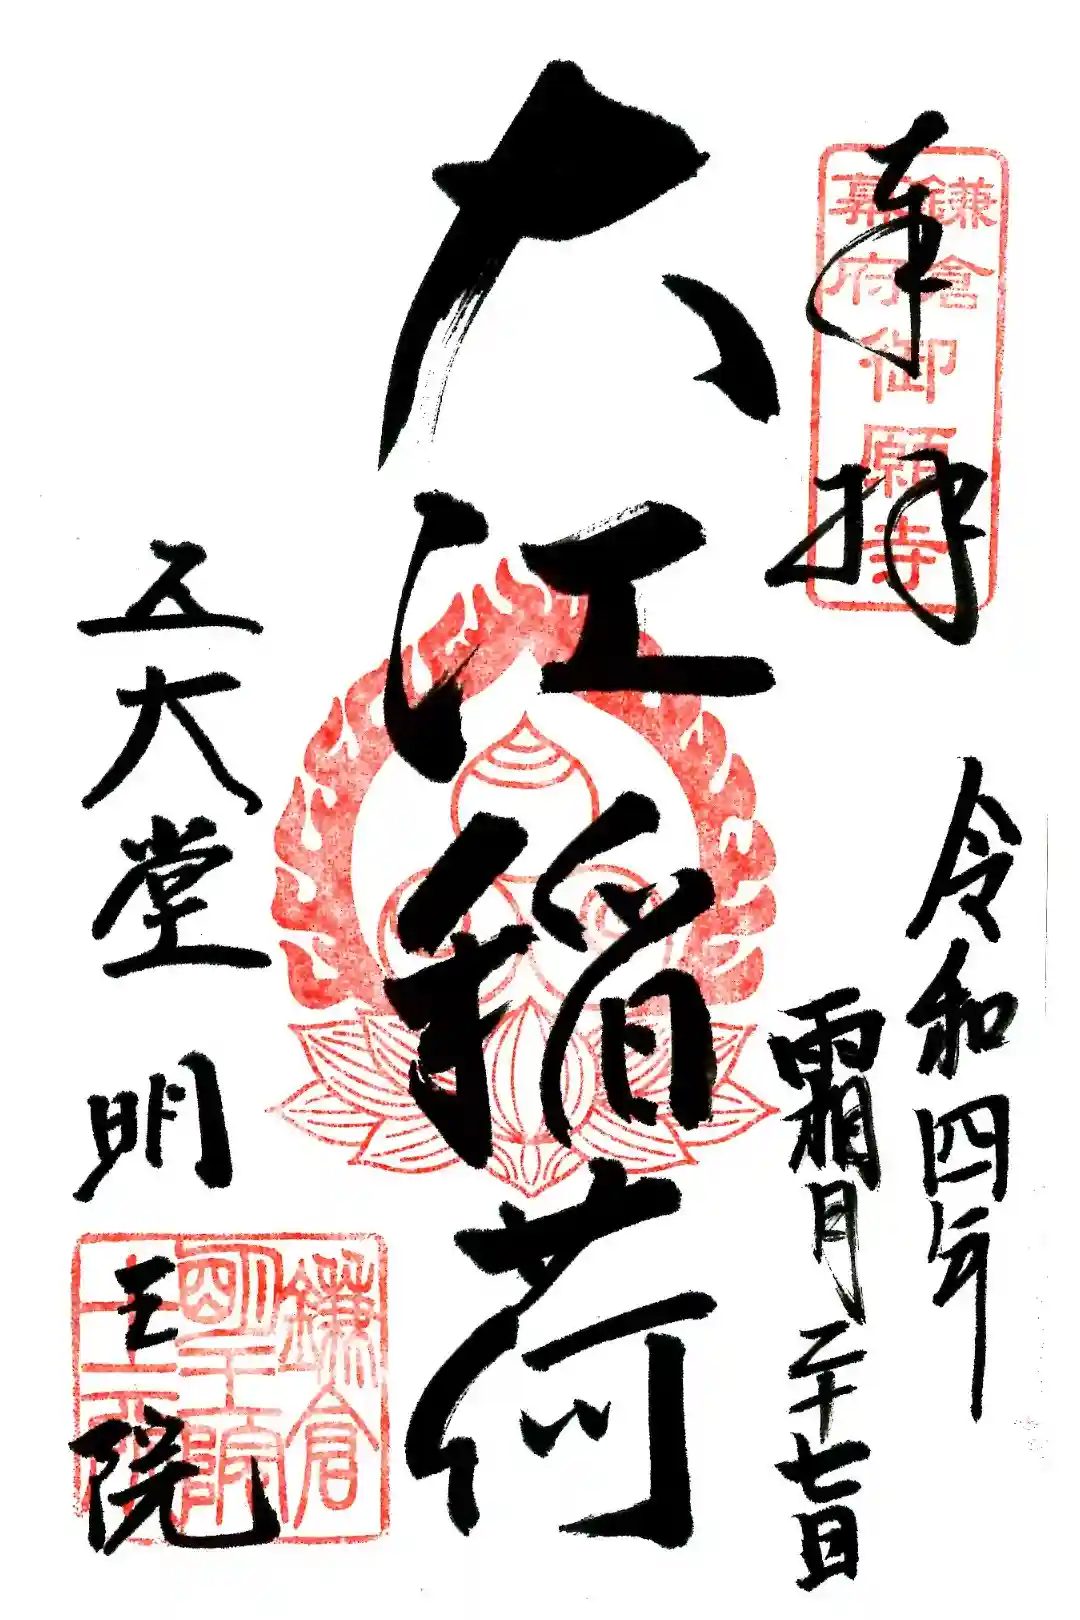 奉拝
鎌倉
幕府
御願寺
令和四年
霜月二十七日
大江稲荷
五大堂 明王院
鎌倉
明王院